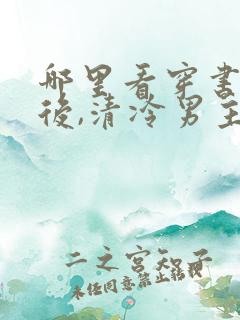 哪里看穿书
後,清冷男主
二之宫知子
未经同意禁止转载